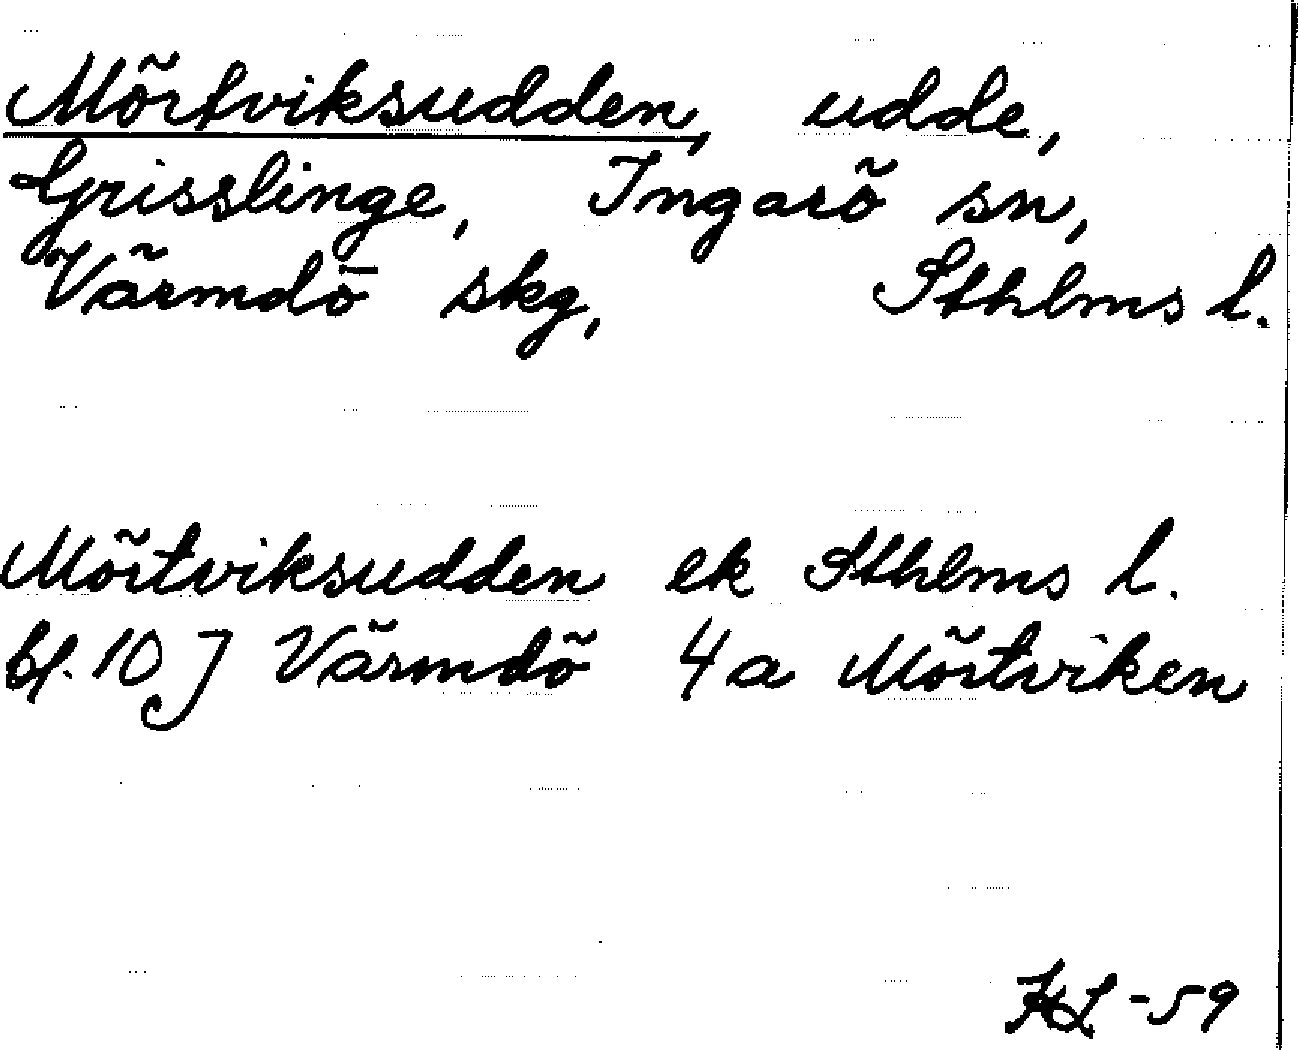 Mörtviksudden, udde,
Grisslinge, Ingarö sn,
Värmdö skg, Sthlms l.
Mörtviksudden ek Sthlms l.
bl. 10 J Värmdö 4a Mörtviken
HL -59